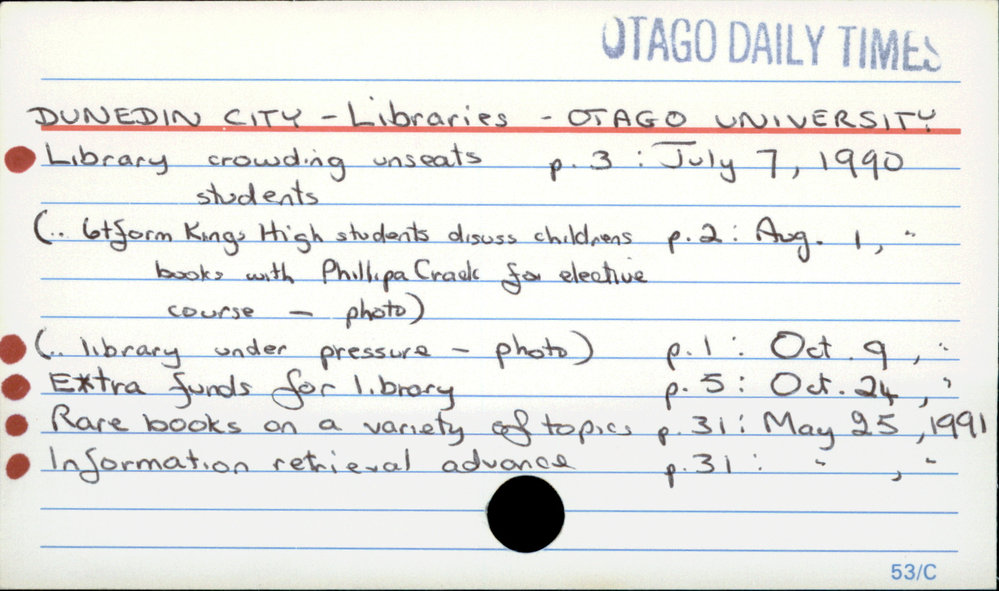 OTAGO DAILY TIMES
DUNEDIN CITY - Libraries - OTAGO UNIVERSITY
Library crowding unseats p. 3 : July 7, 1990
students
(.. 6tform Kings High students disuss childrens p. 2 : Aug. 1, "
books with Phillipa Crack for elective
course - photo)
(.. library under pressure - photo) p. 1 : Oct. 9, "
Extra funds for library p. 5 : Oct. 24, "
Rare books on a variety of topics p. 31 : May 25, 1991
Information retrieval advance p. 31 : " , "
53/C